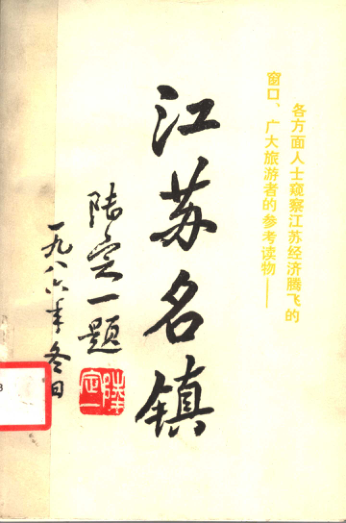 各方面人士窥察江苏经济腾飞的
窗口、广大旅游者的参考读物——
江苏名镇
陆定一题
一九八六年冬日
陆定一
8